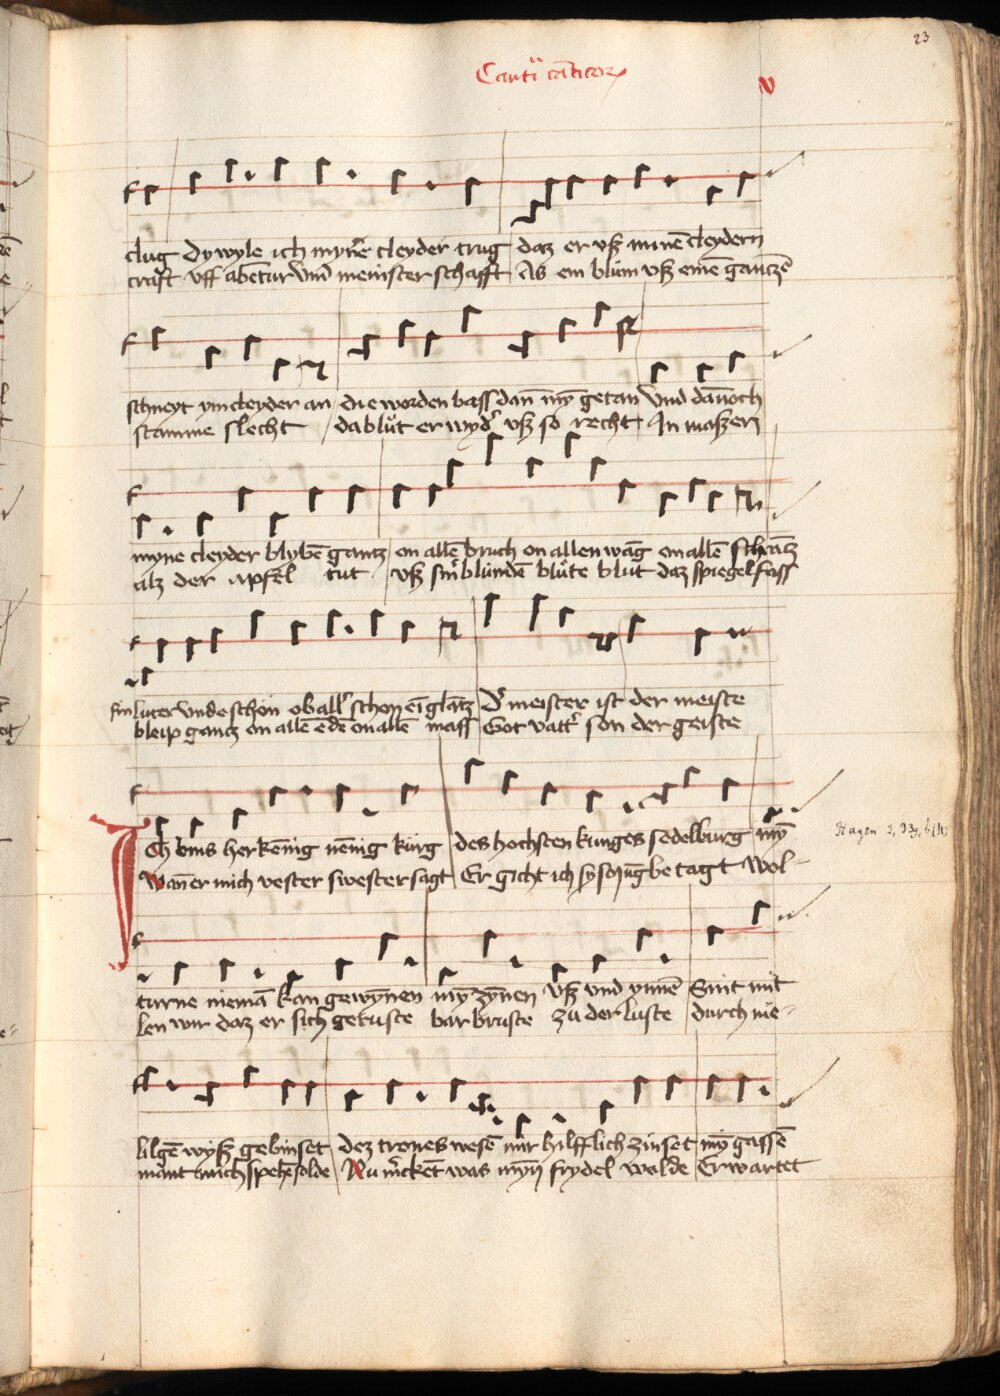 23
Canti canticor
v
clug Dy wyle ich myne cleyder trug daz er vß mine cleydern
crafft vff abetur vnd meinster schafft Als ein blum vß eine gantze
schneyt ym cleyder an die worden bass dan my getan Vnd dannoch
stamme slecht da blut er wyder vß so recht In maßen
myne cleyder blyben gantz on alle bruch on allen wag on alle schrantz
alz der apfel tut vß sin blunden blute blut daz spiegelfass
sin luter vnde schon ob aller schon ein glantz Der meister ist der meiste
bleip gantz on alle ende on alle mass Got vatter son der geiste
Ich bins her kenig nenig kurg des hochsten kunges sedelburg my
Hagen 2, 339, 6
Wan er mich vester swester sagt Er gicht ich sy so jung betagt Wol-
turne nieman kan gewynnen my zynnen vß vnd ynnen Sint mit
len wir daz er sich gekuste bar bruste zu der luste durch me-
lilgen wyß gebinset dez trones wesen mir hilfflich zinset my gassen
mant mich speher solde Nu mercket was myn frydel wolde Er wartet